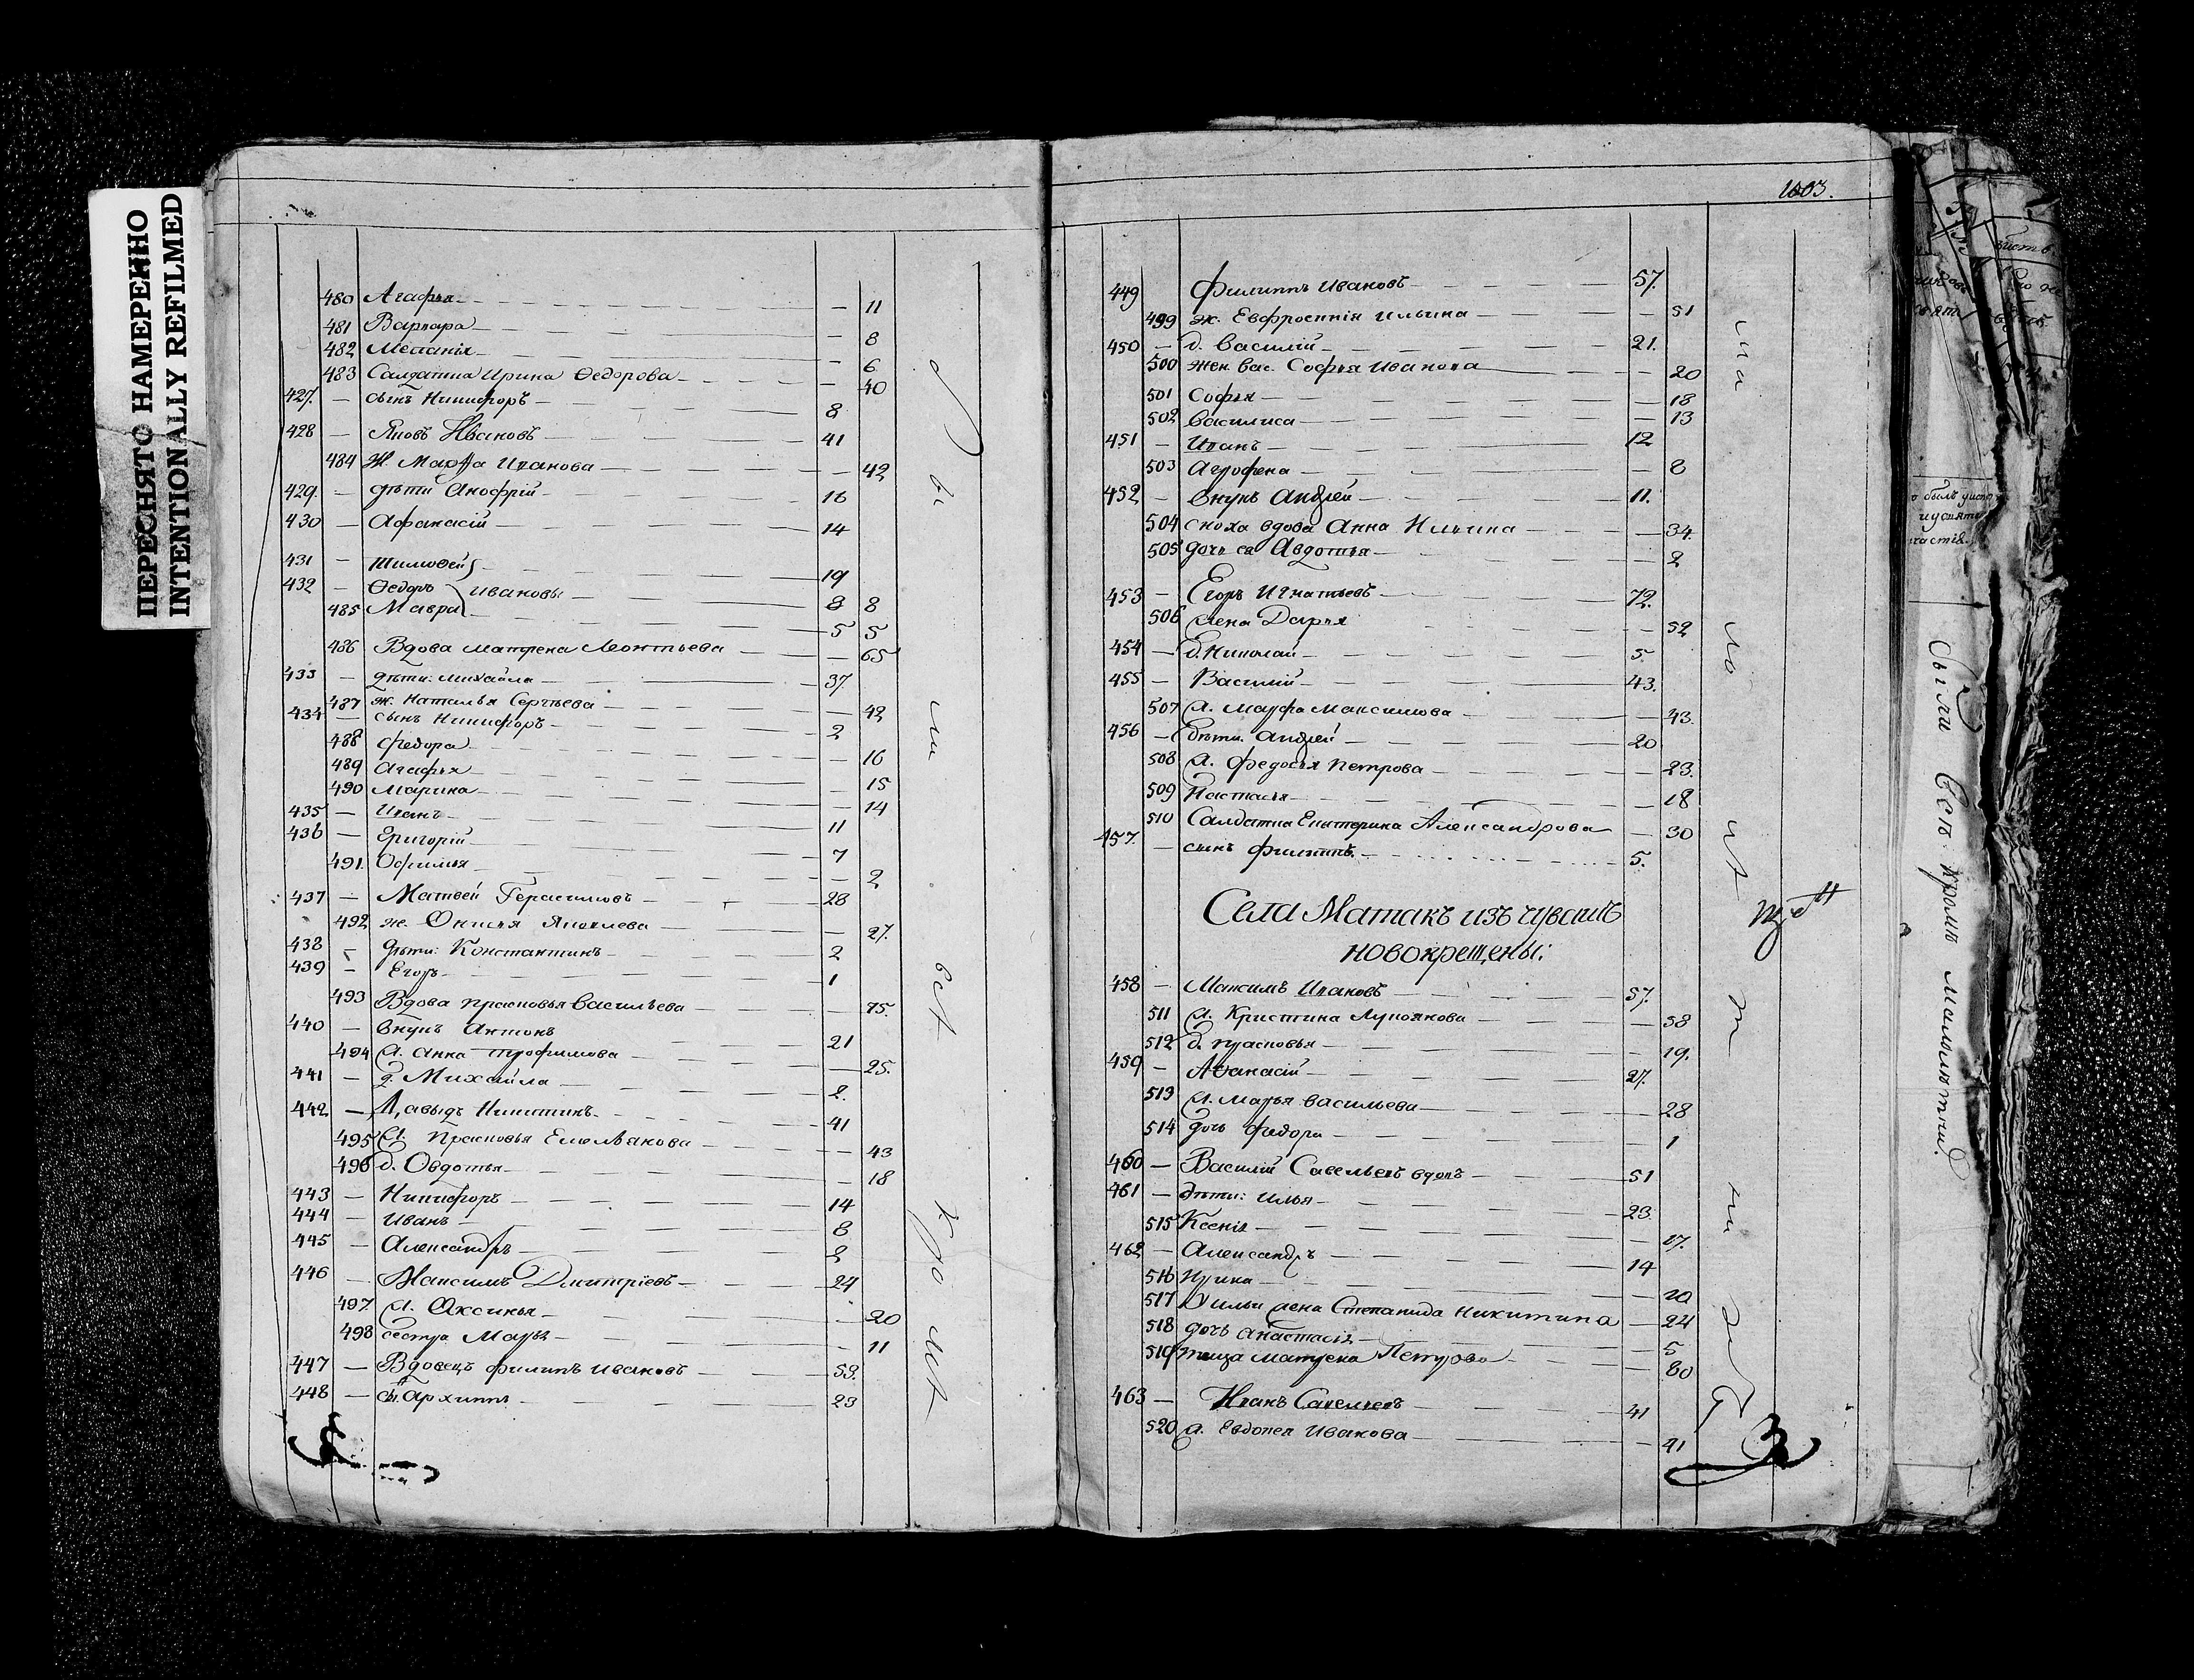 ПЕРЕСНЯТО НАМЕРЕННО
INTENTIONALLY REFILMED
480 Агафья 11
481 Варвара 8
482 Меланія 6
483 Салдатка Ирина Ѳедорова 40
427. — сынъ Никифоръ 8
428 — Яковъ Ивановъ 41
484 Ж. Марѳа Иванова 42
429. — дѣти Анофрій 16
430 — Афанасій 14
431 — Тимофей 19
432 — Ѳедоръ Ивановы 8 8
485 Мавра 5 5
486 Вдова Матрена Леонтьева 65
433 — дѣти: Михайла 37
487 ж. Наталья Сергѣева 42
434 — сынъ Никифоръ 2
488 Федора 16
489 Агафья 15
490 Марина 14
435 — Иванъ 11
436 — Григорій 7
491. Офимья 2
437 — Матвей Герасимовъ 28
492 ж. Онисья Яковлева 27.
438 — дѣти: Константинъ 2
439 — Егоръ 1
493 Вдова Прасковья Васильева 75.
440 — Внукъ Антонъ 21
494 ж. Анна Трофимова 25.
441 — д. Михайла 2.
442 — Давыдъ Никитинъ 41
495 ж. Прасковья Емельянова 43
496 д. Овдотья 18
443 — Никифоръ 14
444 — Иванъ 8
445 — Александръ 2
446 — Максимъ Дмитріевъ 24
497 ж. Аксинья 20
498 сестра Марья 11
447 — Вдовецъ Филипъ Ивановъ 53.
448 — сы. Архипъ 23
были всѣ кромѣ
1003.
449 Филиппъ Ивановъ 57.
499 ж. Евфросинія Ильина 51
450 — д. Василій 21.
500 жен. Вас. Софья Иванова 20
501 Софья 18
502 Василиса 13
451 — Иванъ 12
503 Агрофена 8
452 — Внукъ Андрей 11.
504 сноха вдова Анна Ильина 34
505 дочь ея Авдотья 2
453 — Егоръ Игнатьевъ 72.
506 жена Дарья 52
454 — д. Николай 5
455 — Василій 43.
507 ж. Марфа Максимова 43.
456 — дѣти. Андрей 20
508 ж. Федосья Петрова 23.
509 Настасья 18
510 Салдатка Екатерина Александрова 30
457. — сынъ Филиппъ. 5.
Села Матакъ изъ чувашъ
новокрещены:
458 — Максимъ Ивановъ 57.
511 ж. Кристина Лукоянова 58
512 д. Прасковья 19.
459 — Аѳанасій 27.
513 ж. Марья Васильева 28
514 дочь Федора 1
460 — Василій Савельевъ вдовъ 51
461 — дѣти: Илья 23.
515 Ксенія 17.
462 — Александръ 14
516 Ирина 10
517 У Ильи жена Степанида Никитина 24
518 дочь Анастасія 5
519 теща Матрена Петрова 80
463 — Иванъ Савельевъ 41
520 ж. Евдокея Иванова 41
были всѣ кромѣ малолѣтних.